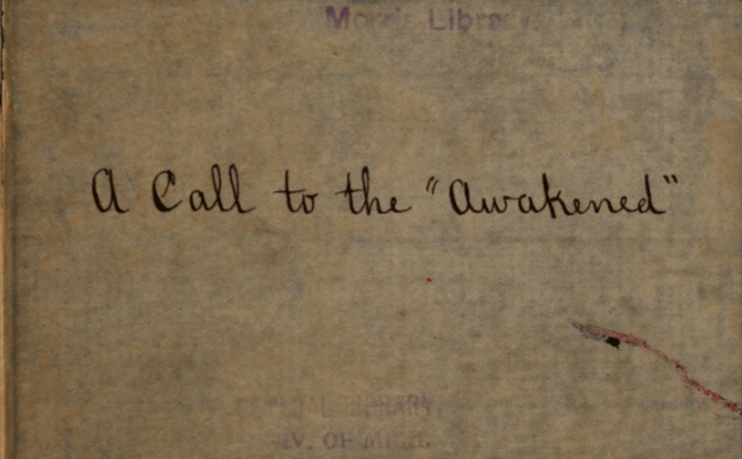 Library
A Call to the "Awakened"
LIBRARY,
OF MICH.